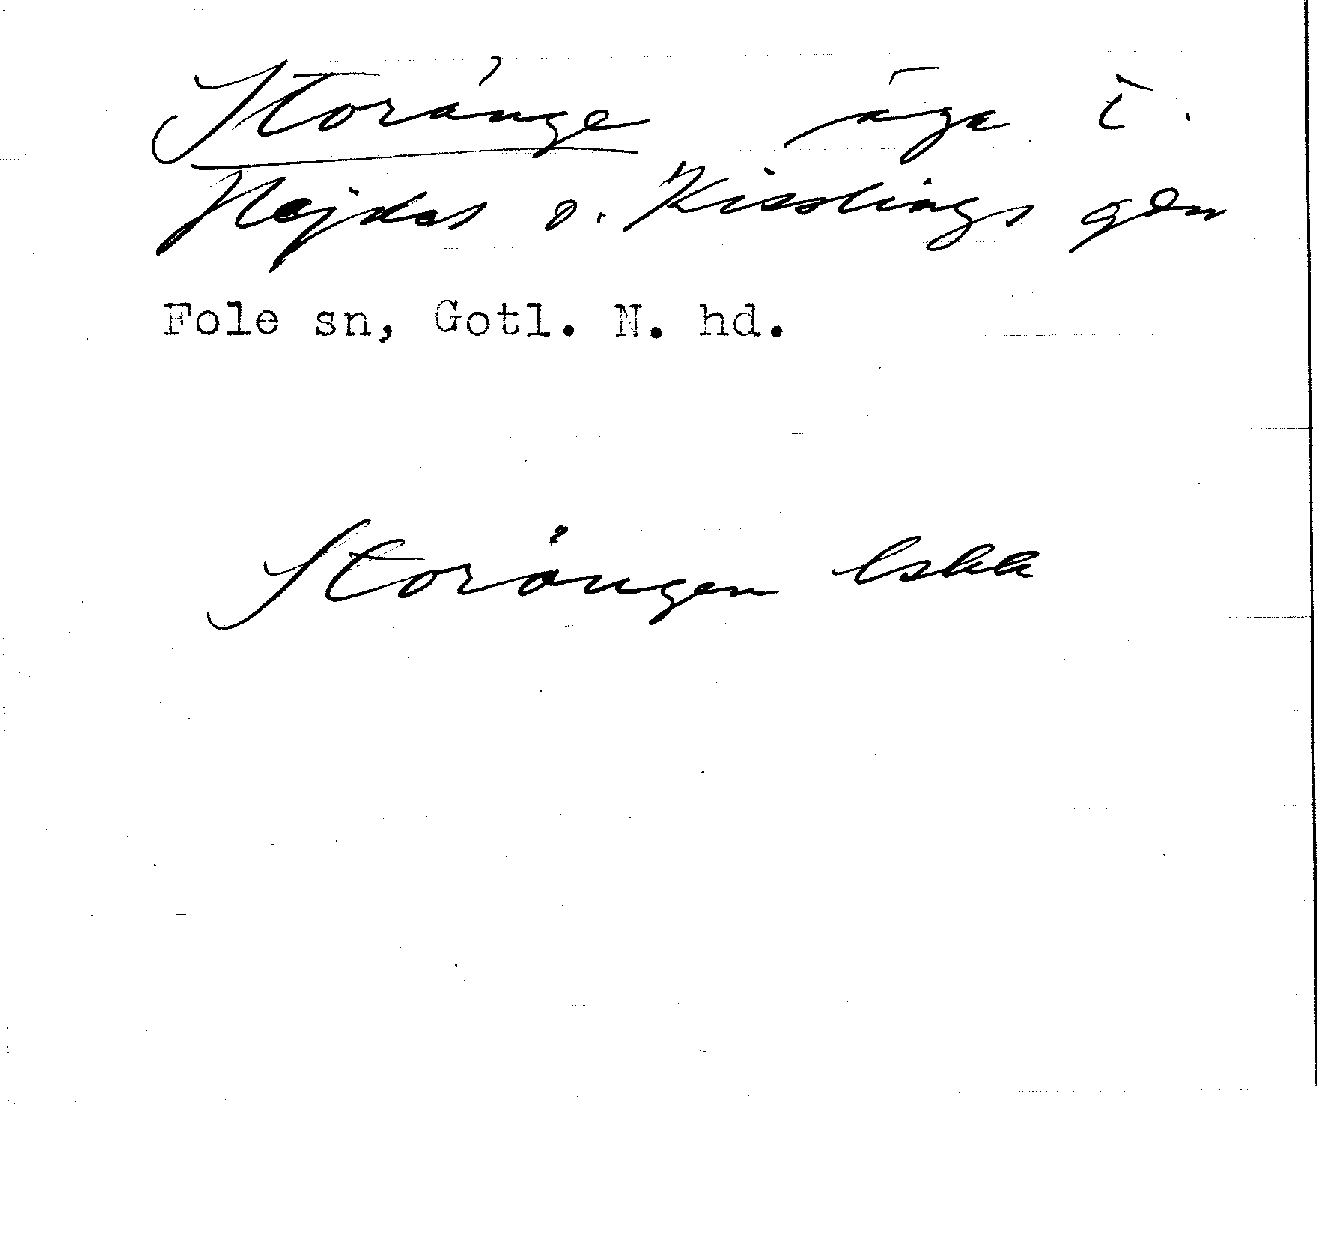 Storänge äga t.
Hejdas o. Kisslings gdn
Fole sn, Gotl. N. hd.
Storängen lskk